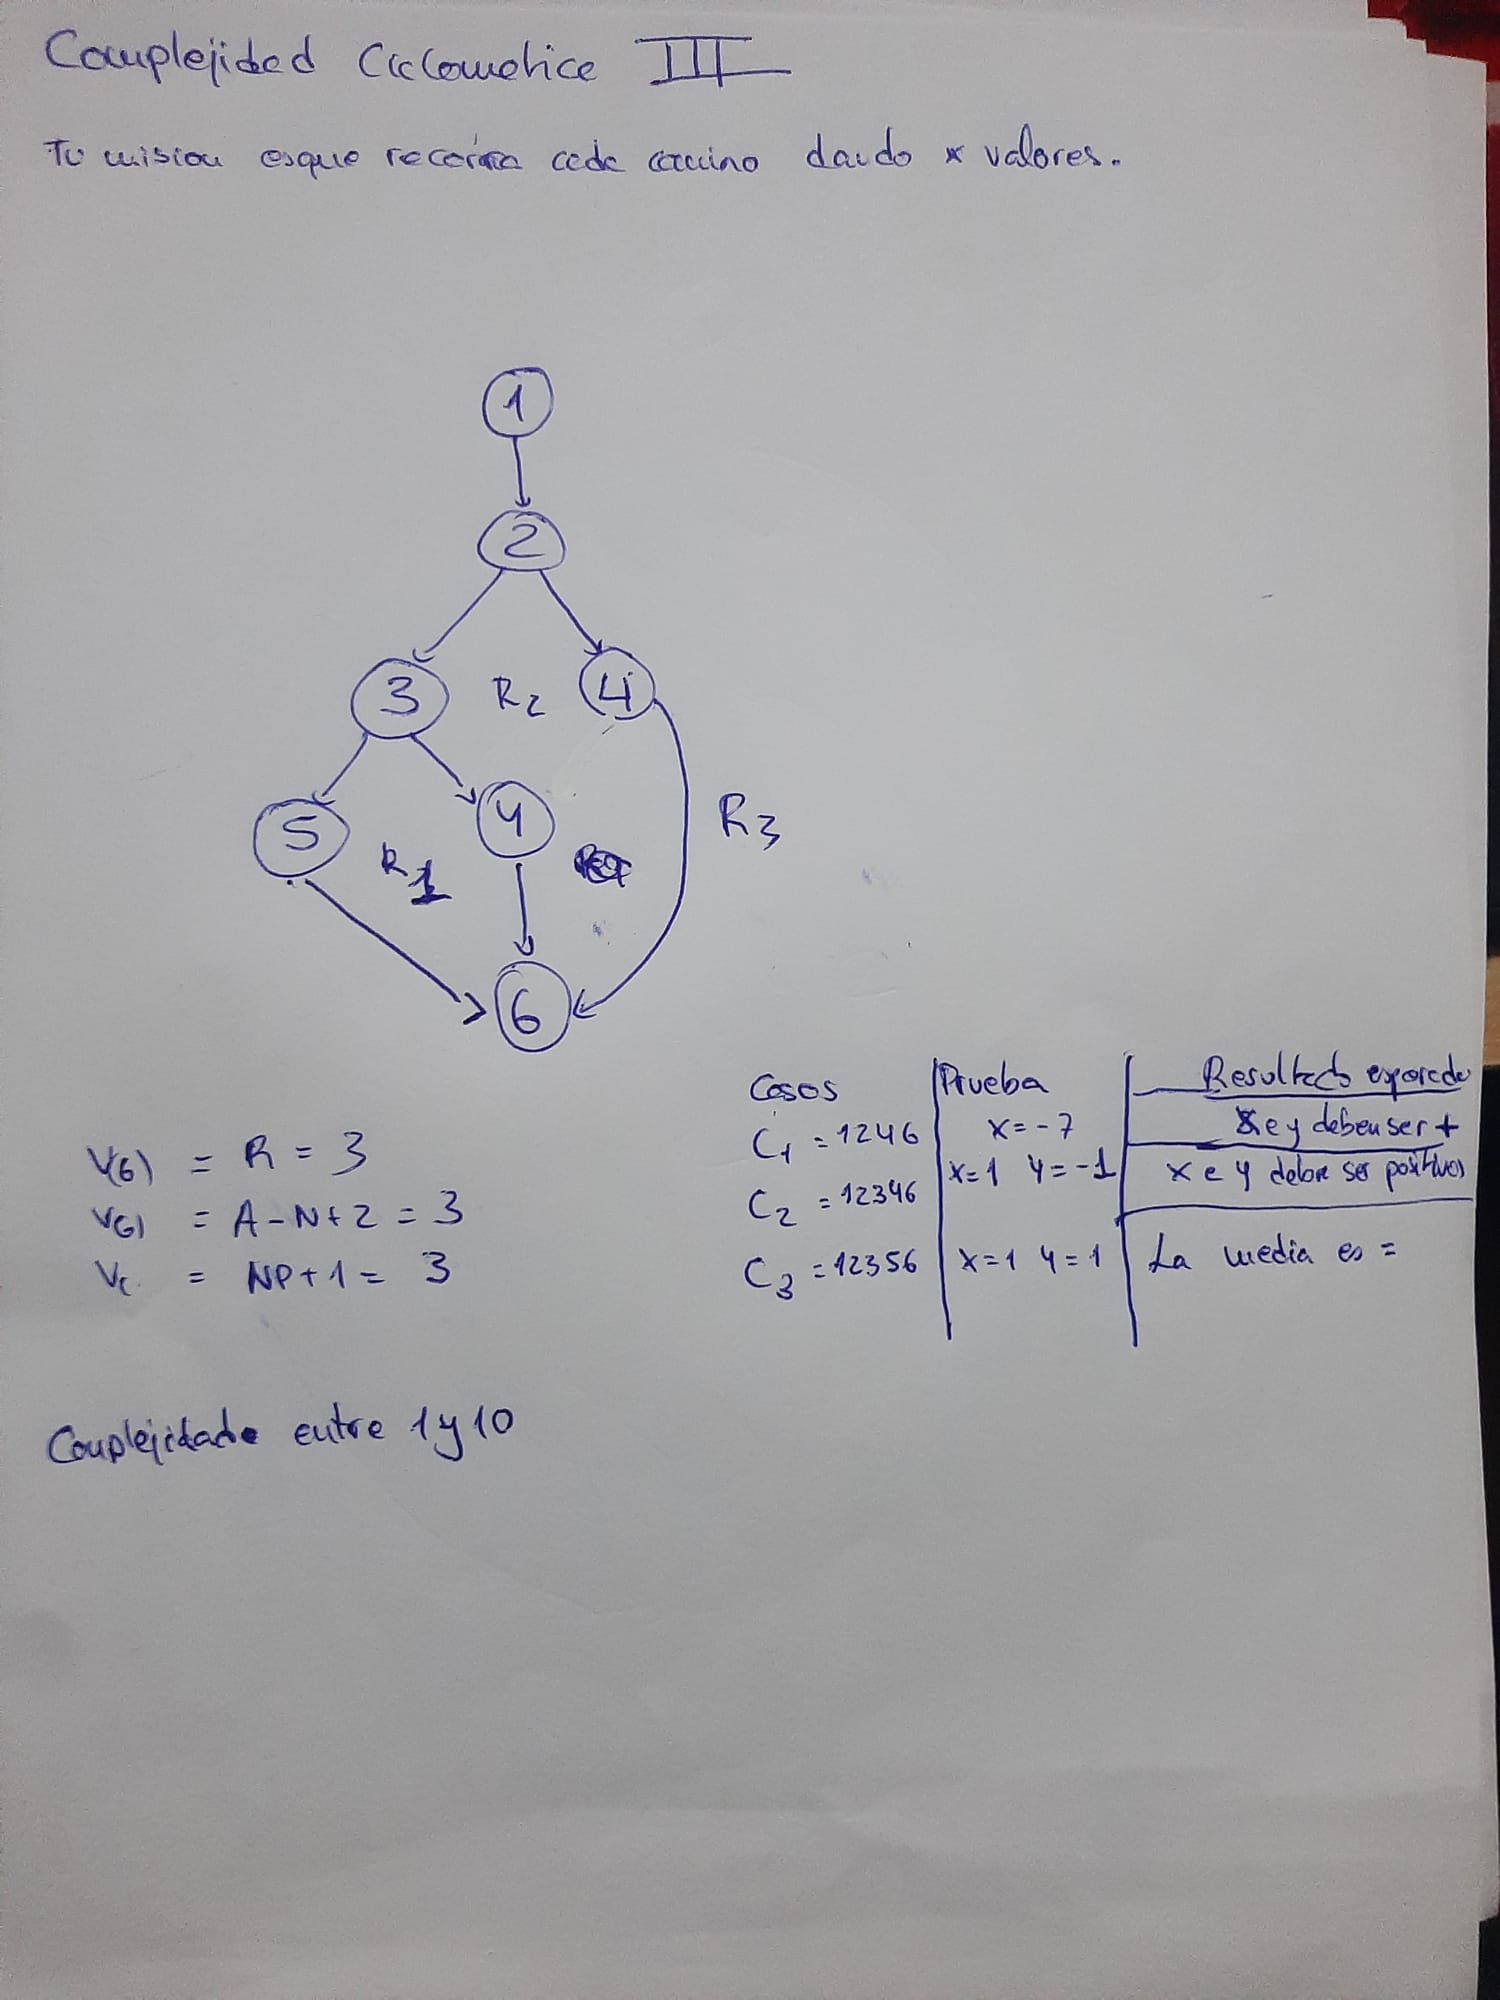 Complejidad Ciclomatica III
Tu mision es que recorra cada camino dando x valores.
1
2
3 R2 4
5 R1 4 R3
6
V(G) = R = 3
V(G) = A - N + 2 = 3
V( = NP + 1 = 3
Casos Prueba Resultado esperado
C1 = 1246 x = -7 X e y deben ser +
C2 = 12346 x = 1 y = -1 x e y debe ser positivos
C3 = 12356 x = 1 y = 1 La media es =
Complejidade entre 1 y 10